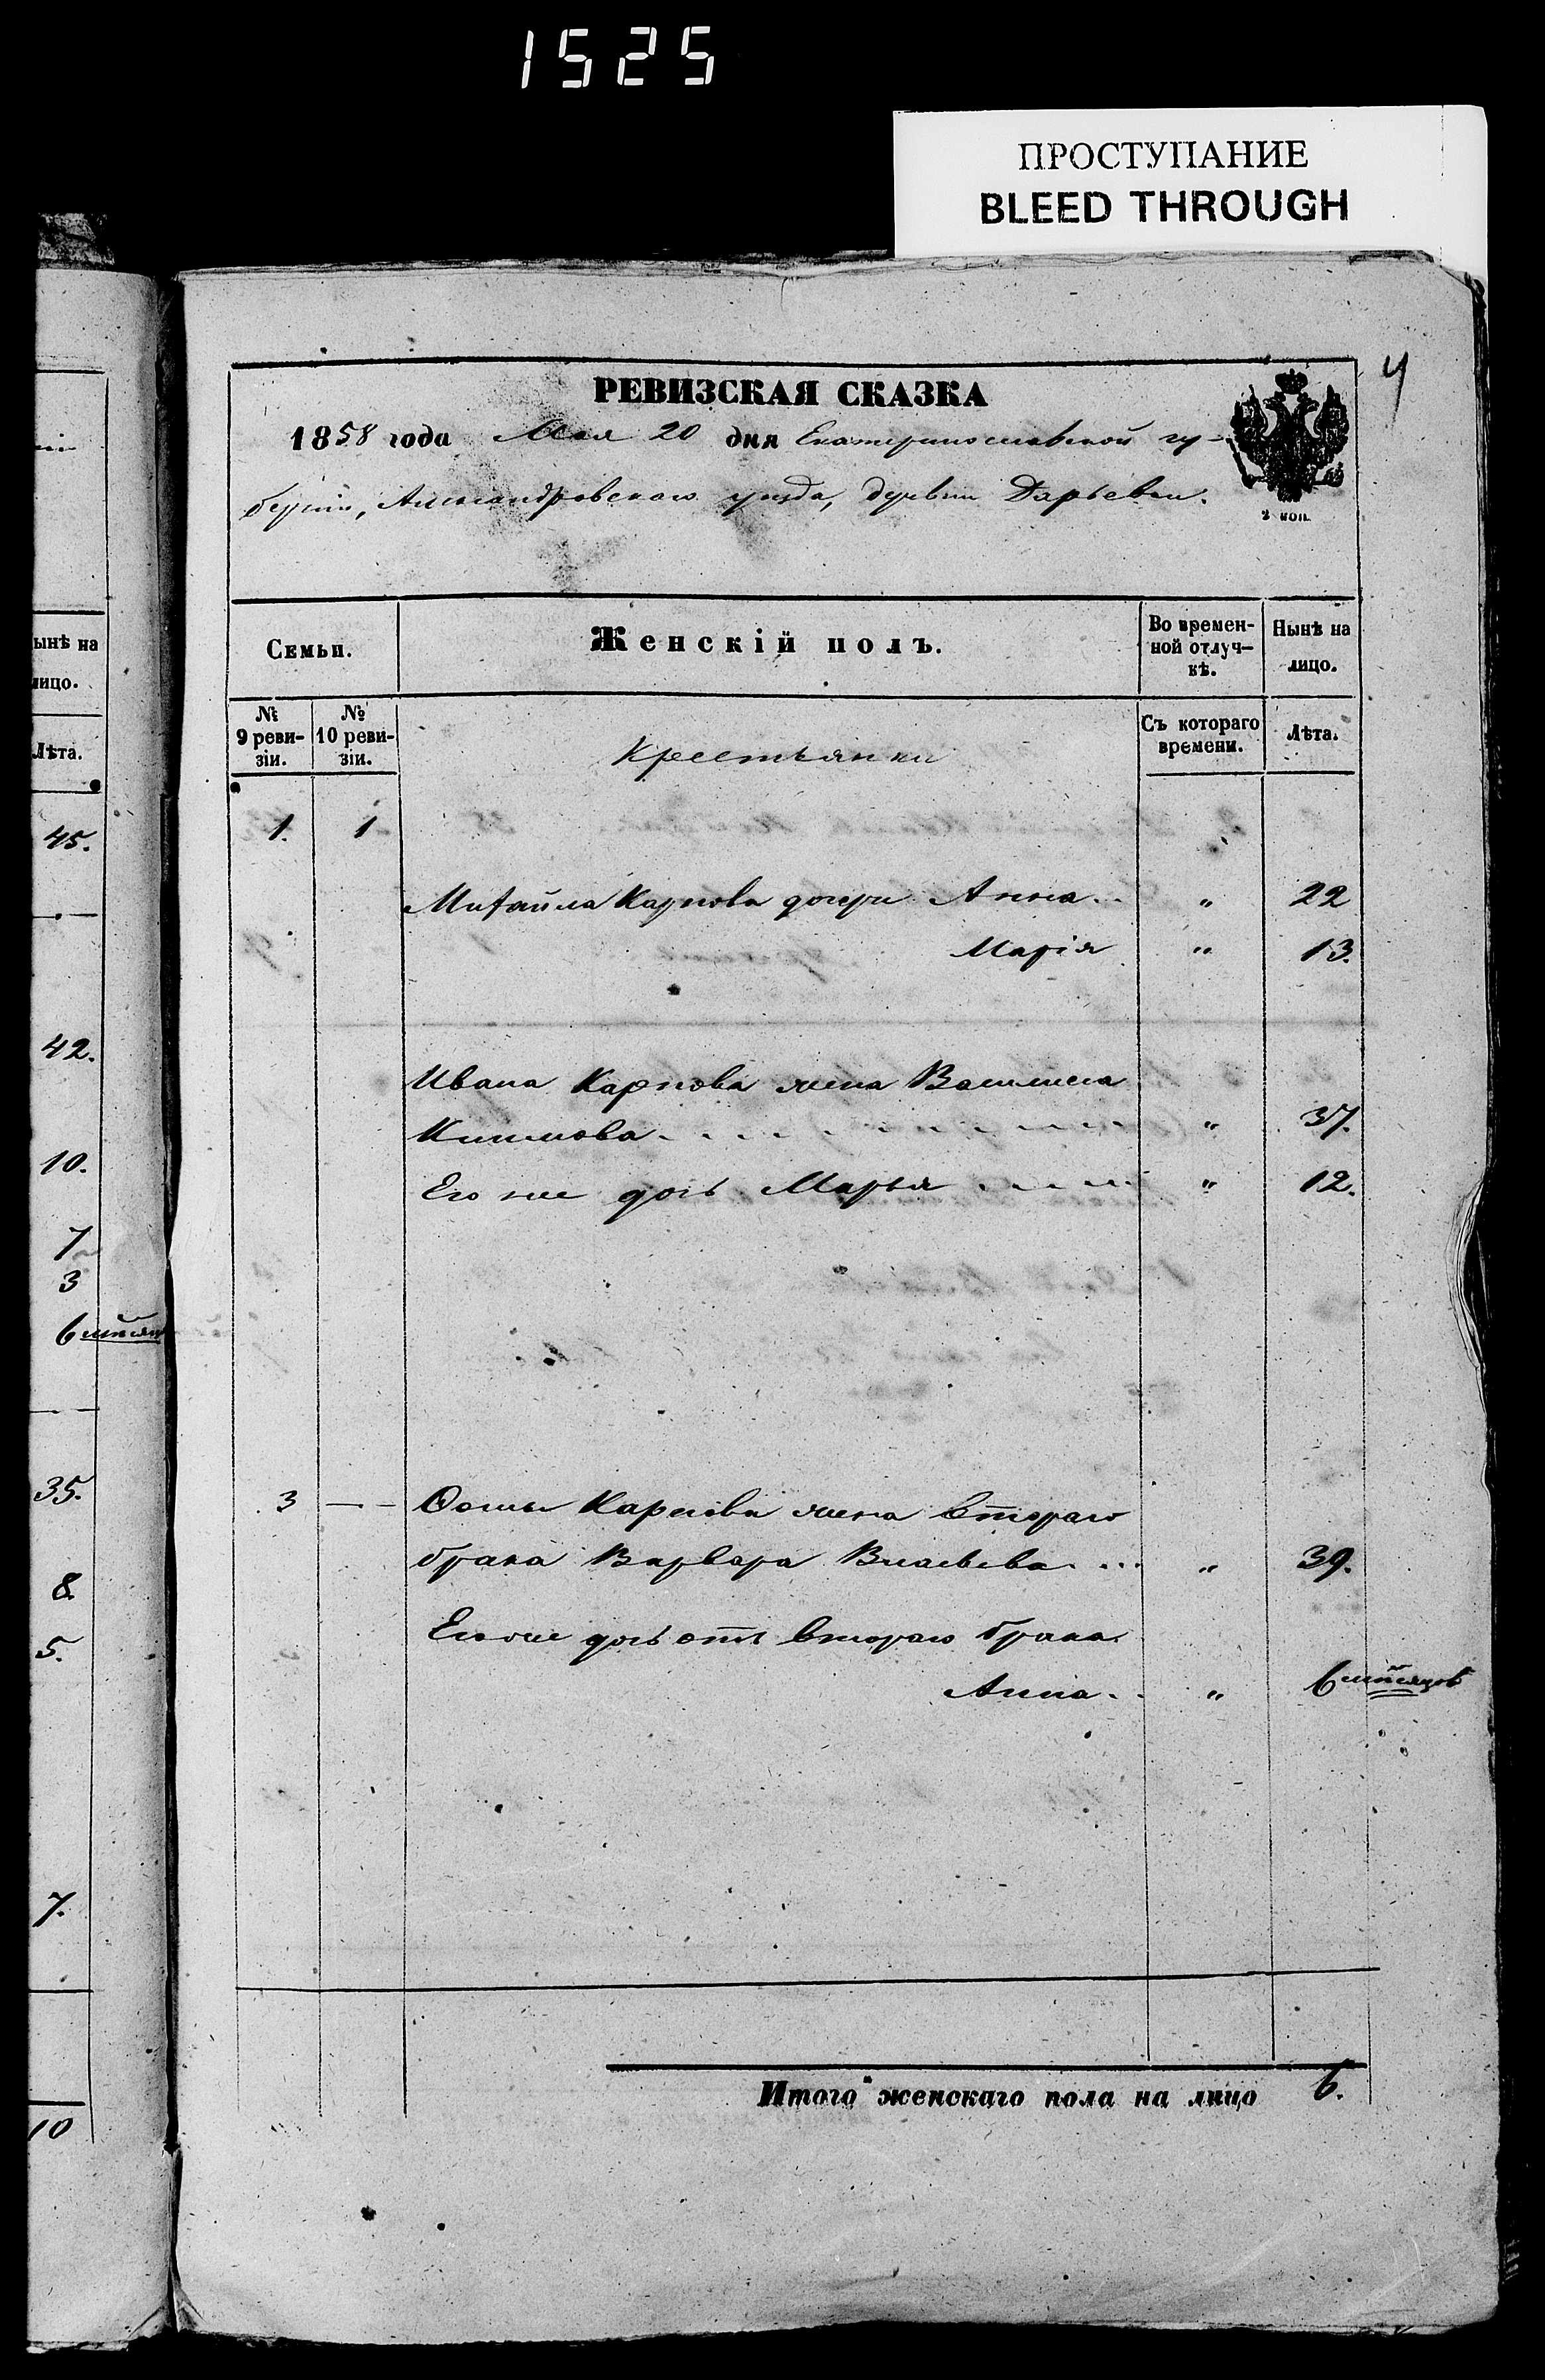 1525
ПРОСТУПАНИЕ
BLEED THROUGH
4
РЕВИЗСКАЯ СКАЗКА
1858 года Мая 20 дня Екатеринославской гу-
берніи, Александровскаго уезда, деревни Дарьевки.
2 коп.
Семьи.
Женскій полъ.
Во времен-
ной отлуч-
кѣ.
Нынѣ на
лицо.
№
9 реви-
зіи.
№
10 реви-
зіи.
Крестьянки
Съ котораго
времени.
Лѣта.
1. 1
Михайла Карпова дочери Анна .. " 22
Марія " 13.
Ивана Карпова жена Василиса
Климова . . . . . . . . . . " 37.
Его же дочь Марья . . . . . " 12.
3 — — Ѳомы Карпова жена втораго
брака Варвара Власьева . ... " 39.
Его же дочь отъ втораго брака
Анна .. " 6 мѣсяцовъ
Итого женскаго пола на лицо 6.
ынѣ на
лицо.
Лѣта.
45.
42.
10.
7
3
6 мѣсяц
35.
8.
5.
7.
10